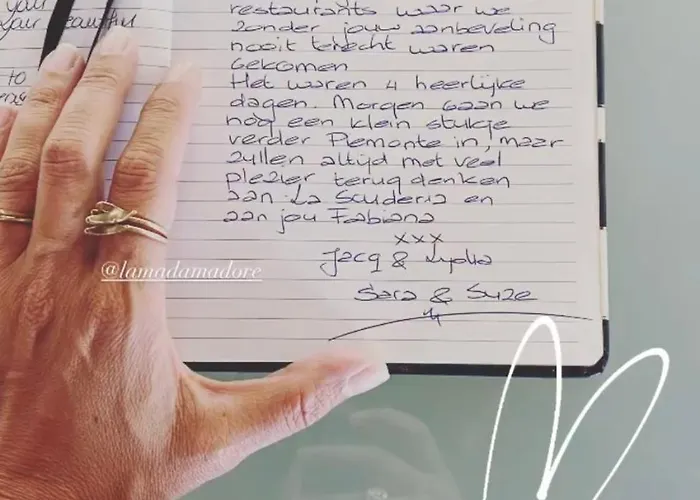 your beautiful
to
restaurants waar we
zonder jouw aanbeveling
nooit terecht waren
gekomen
Het waren 4 heerlijke
dagen. Morgen gaan we
nog een klein stukje
verder Piemonte in, maar
zullen altijd met veel
plezier terug denken
aan La Scuderia en
aan jou Fabiana
xxx
Jacq & Lydia
Sara & Suze
@lamadamadore